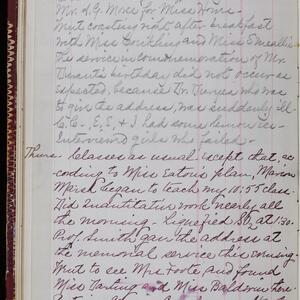 Mr. A. G. More for Miss Howe.
Went coasting right after breakfast
with Miss Conkling and Miss Smeallie.
The service in commemoration of Mr.
Durant's birthday did not occur as
expected, because Dr. Duryea who was
to give the address, was suddenly ill.
C. C., E. S., & I had some lemon ice.
Interviewed girls who failed.
Thurs. Classes as usual except that, ac-
cording to Miss Eaton's plan, Marion
Marsh began to teach my 10:55 class.
Did quantitative work nearly all
the morning. at 1:30.
Prof. Smith gave the address at
the memorial service this evening.
Went to see Mrs Foote and found
Miss Tarling and Miss Baldwin there